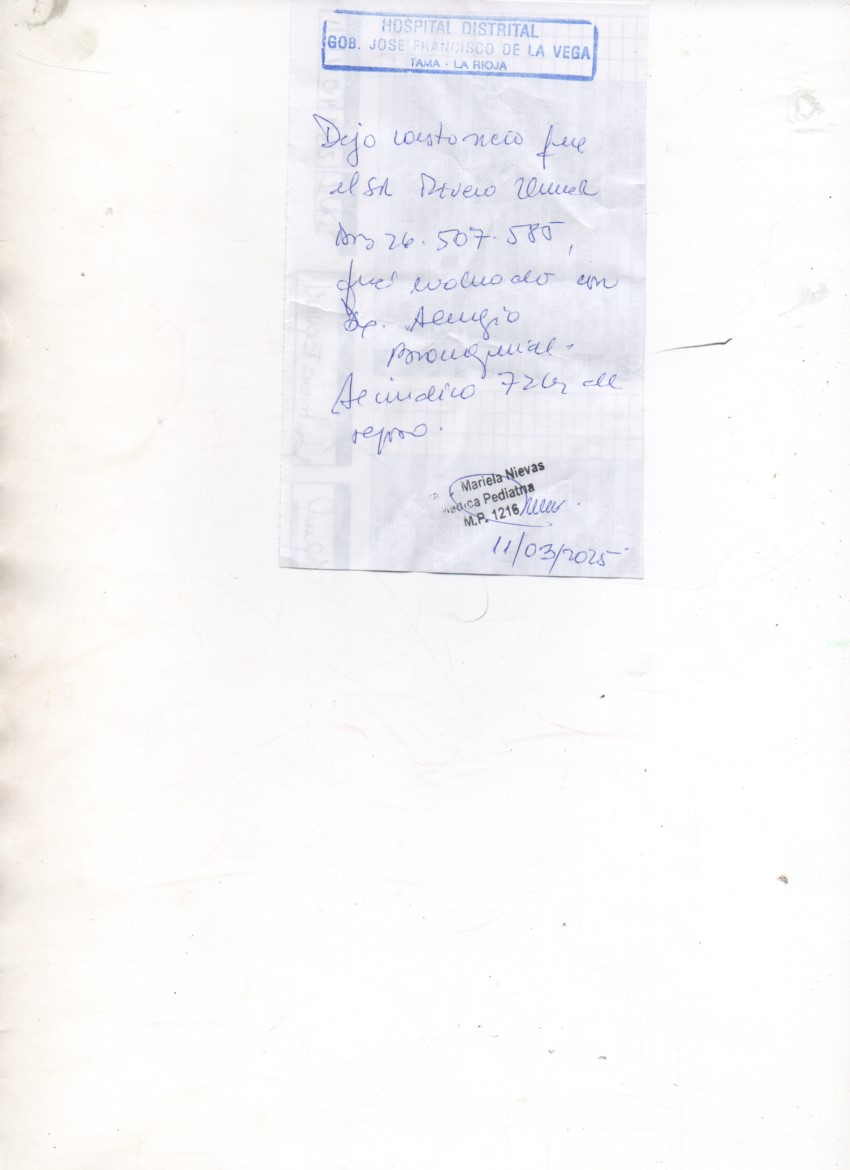 HOSPITAL DISTRITAL
GOB. JOSE FRANCISCO DE LA VEGA
TAMA - LA RIOJA
Dejo constancia que
el Sr
26.507.585,
fue evaluado con
Dx. Alergia
Bronquial.
Se indica 72hs de
reposo.
Mariela Nievas
Médica Pediatra
M.P. 1216
11/03/2025